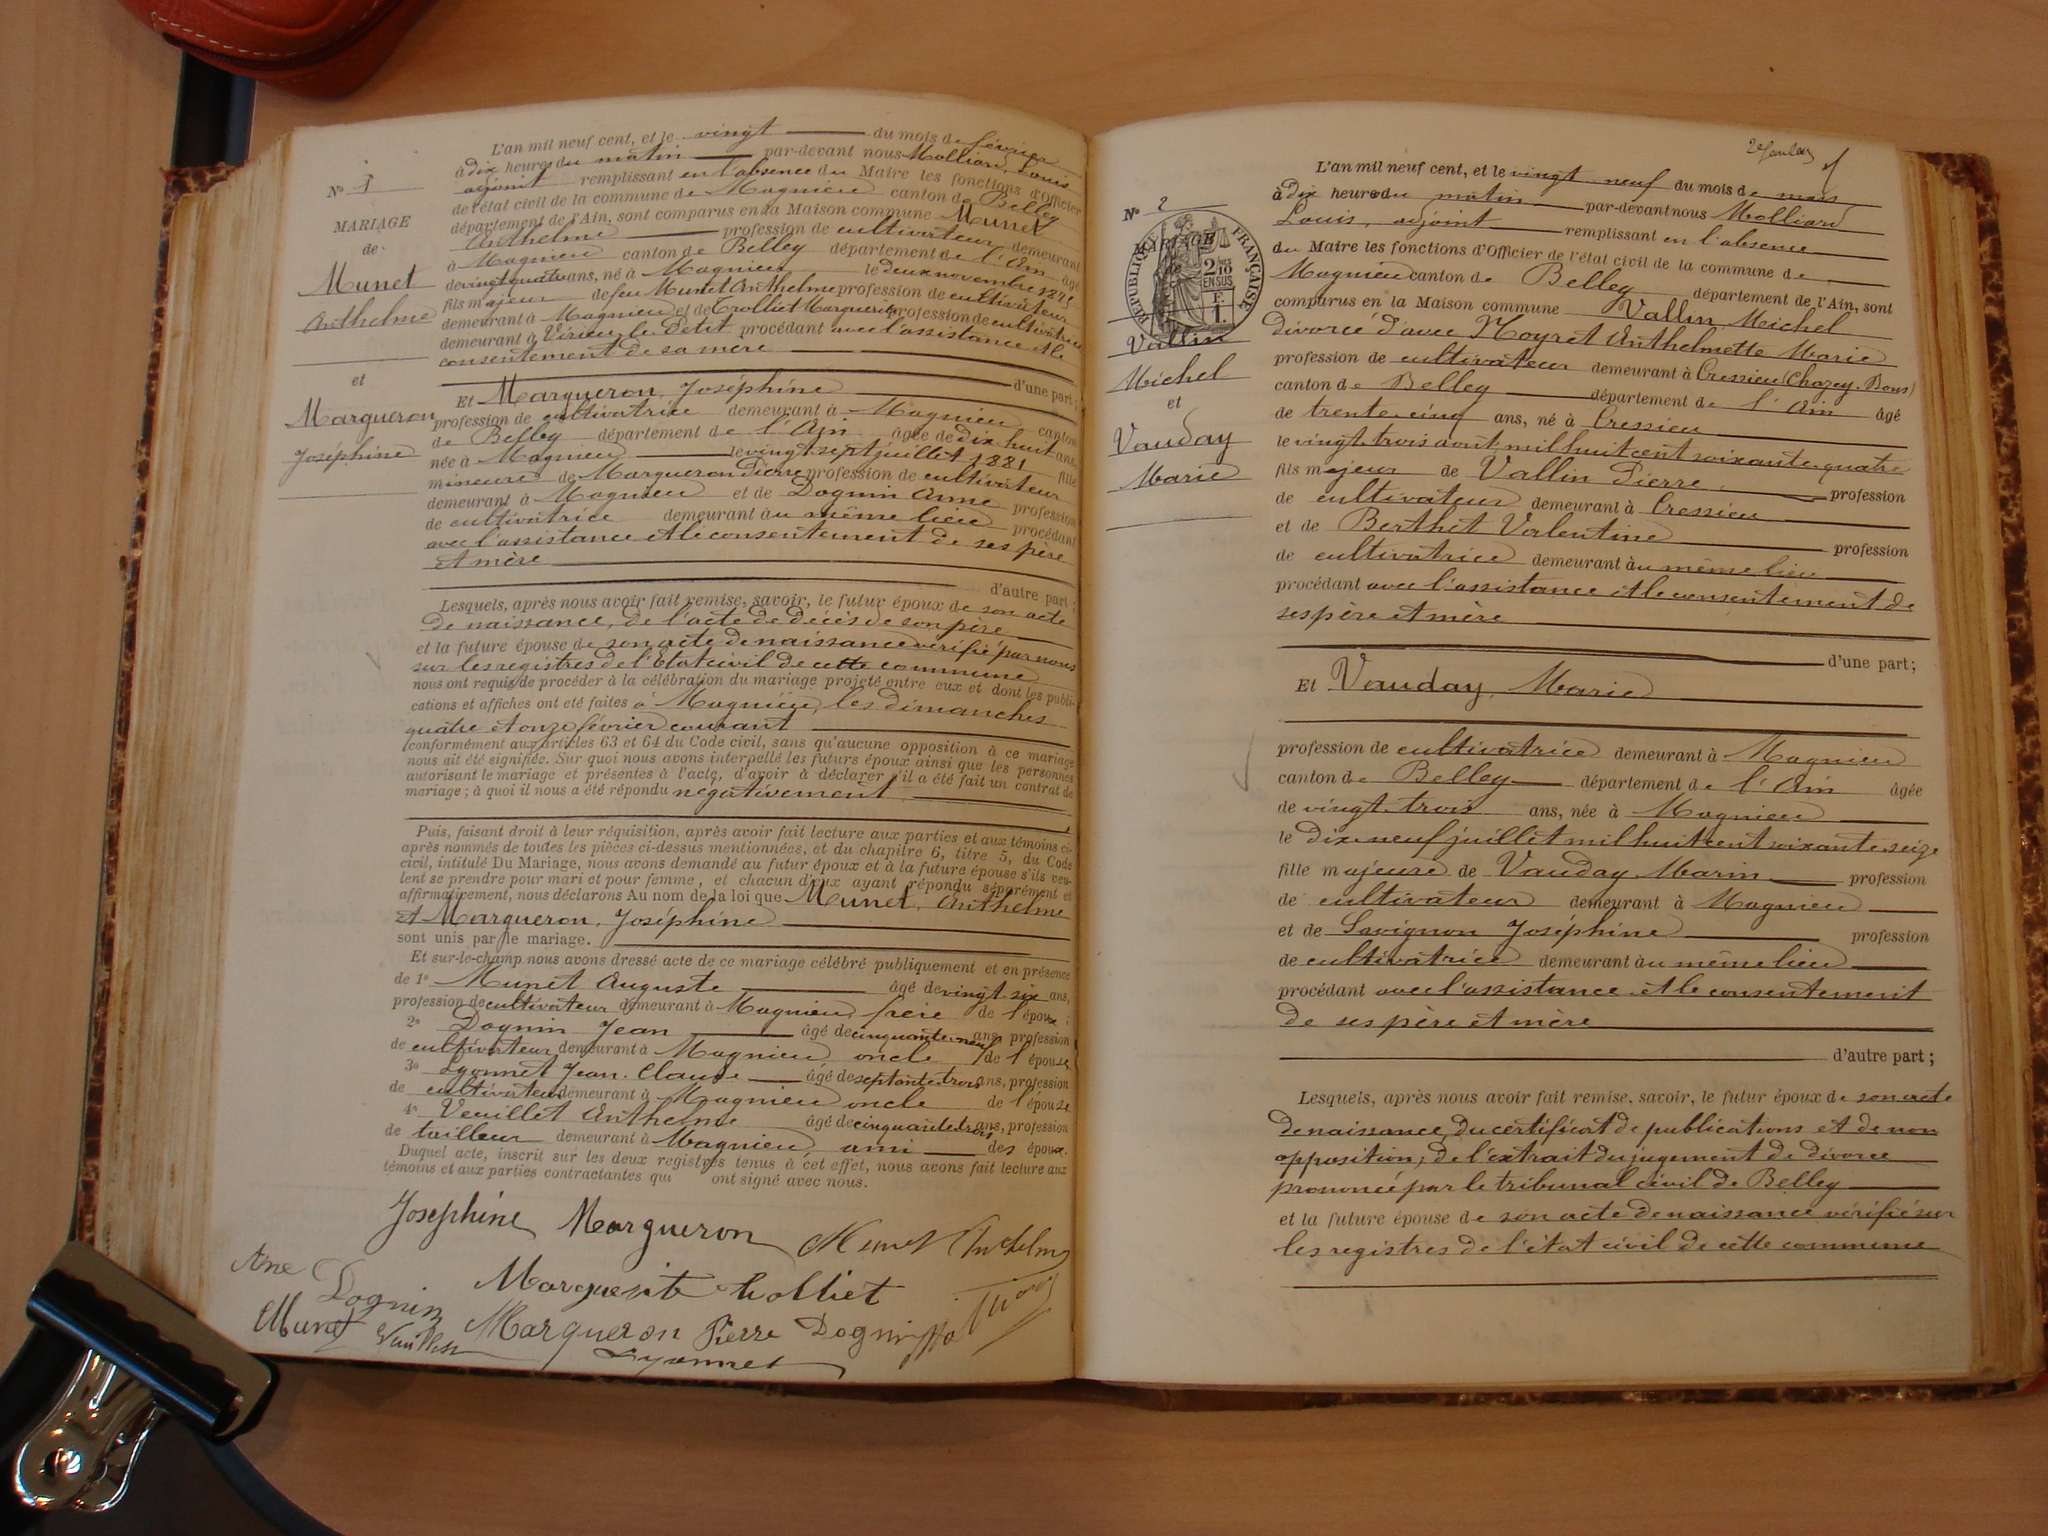 N° 1
MARIAGE
de
Munet
Anthelme
et
Margueron
Joséphine
L'an mil neuf cent, et le vingt du mois de février
à dix heure du matin par-devant nous Molliard, Louis
adjoint remplissant en l'absence du Maire les fonctions d'Officier
de l'état civil de la commune de Magnieu canton de Belley
département de l'Ain, sont comparus en la Maison commune Munet
Anthelme profession de cultivateur demeurant
à Magnieu canton de Belley département de l'Ain âgé
de vingt quatre ans, né à Magnieu le deux novembre
fils majeur de feu Munet Anthelme profession de cultivateur
demeurant à Magnieu et de Trolliet Marguerite profession de cultivatrice
demeurant à Virieu-le-Petit procédant avec l'assistance et le
consentement de sa mère
d'une part;
Et Margueron, Joséphine
profession de cultivatrice demeurant à Magnieu canton
de Belley département de l'Ain âgée de dix huit ans
née à Magnieu le vingt sept juillet 1881 fille
mineure de Margueron Pierre profession de cultivateur
demeurant à Magnieu et de Dognin Anne profession
de cultivatrice demeurant au même lieu procédant
avec l'assistance et le consentement de ses père
et mère
d'autre part;
Lesquels, après nous avoir fait remise, savoir, le futur époux de son acte
de naissance, de l'acte de décès de son père
et la future épouse de son acte de naissance vérifié par nous
sur les registres de l'Etat civil de cette commune
nous ont requis de procéder à la célébration du mariage projeté entre eux et dont les publi-
cations et affiches ont été faites à Magnieu, les dimanches
quatre et onze février courant
conformément aux articles 63 et 64 du Code civil, sans qu'aucune opposition à ce mariage
nous ait été signifiée. Sur quoi nous avons interpellé les futurs époux ainsi que les personnes
autorisant le mariage et présentes à l'acte, d'avoir à déclarer s'il a été fait un contrat de
mariage; à quoi il nous a été répondu négativement
Puis, faisant droit à leur réquisition, après avoir fait lecture aux parties et aux témoins ci-
après nommés de toutes les pièces ci-dessus mentionnées, et du chapitre 6, titre 5, du Code
civil, intitulé Du Mariage, nous avons demandé au futur époux et à la future épouse s'ils veu-
lent se prendre pour mari et pour femme, et chacun d'eux ayant répondu séparément et
affirmativement, nous déclarons Au nom de la loi que Munet, Anthelme
et Margueron, Joséphine
sont unis par le mariage.
Et sur-le-champ nous avons dressé acte de ce mariage célébré publiquement et en présence
de 1° Munet Auguste âgé de vingt six ans,
profession de cultivateur demeurant à Magnieu, frère de l'époux;
2° Dognin Jean âgé de cinquante neuf ans, profession
de cultivateur demeurant à Magnieu oncle de l'épouse
3° Lyonnet Jean-Claude âgé de septante trois ans, profession
de cultivateur demeurant à Magnieu oncle de l'épouse
4° Veuillet Anthelme âgé de cinquante trois ans, profession
de tailleur demeurant à Magnieu, ami des époux.
Duquel acte, inscrit sur les deux registres tenus à cet effet, nous avons fait lecture aux
témoins et aux parties contractantes qui ont signé avec nous.
Joséphine Margueron Munet Anthelme
Ane Dognin Marguerite Trolliet
Munet Veuillet Margueron Pierre Dognin
Lyonnet
N° 2
MARIAGE
RÉPUBLIQUE FRANÇAISE
2/10
EN SUS
F.
1.
Vallin
Michel
et
Vauday
Marie
L'an mil neuf cent, et le vingt-neuf du mois de mars
à dix heures du matin par-devant nous Molliard
Louis, adjoint remplissant en l'absence
du Maire les fonctions d'Officier de l'état civil de la commune de
Magnieu canton de Belley département de l'Ain, sont
comparus en la Maison commune Vallin Michel
divorcé d'avec Moyret Anthelmette Marie
profession de cultivateur demeurant à Cressieu (Chazey-Bons)
canton de Belley département de l'Ain âgé
de trente-cinq ans, né à Cressieu
le vingt-trois août mil huit cent soixante-quatre
fils majeur de Vallin Pierre profession
de cultivateur demeurant à Cressieu
et de Berthet Valentine profession
de cultivatrice demeurant au même lieu
procédant avec l'assistance et le consentement de
ses père et mère
d'une part;
Et Vauday, Marie
profession de cultivatrice demeurant à Magnieu
canton de Belley département de l'Ain âgée
de vingt-trois ans, née à Magnieu
le dix-neuf juillet mil huit cent soixante-seize
fille majeure de Vauday Marin profession
de cultivateur demeurant à Magnieu
et de Savignon Joséphine profession
de cultivatrice demeurant au même lieu
procédant avec l'assistance et le consentement
de ses père et mère
d'autre part;
Lesquels, après nous avoir fait remise, savoir, le futur époux de son acte
de naissance, du certificat de publications et de non
opposition, de l'extrait du jugement de divorce
prononcé par le tribunal civil de Belley
et la future épouse de son acte de naissance vérifié sur
les registres de l'état civil de cette commune